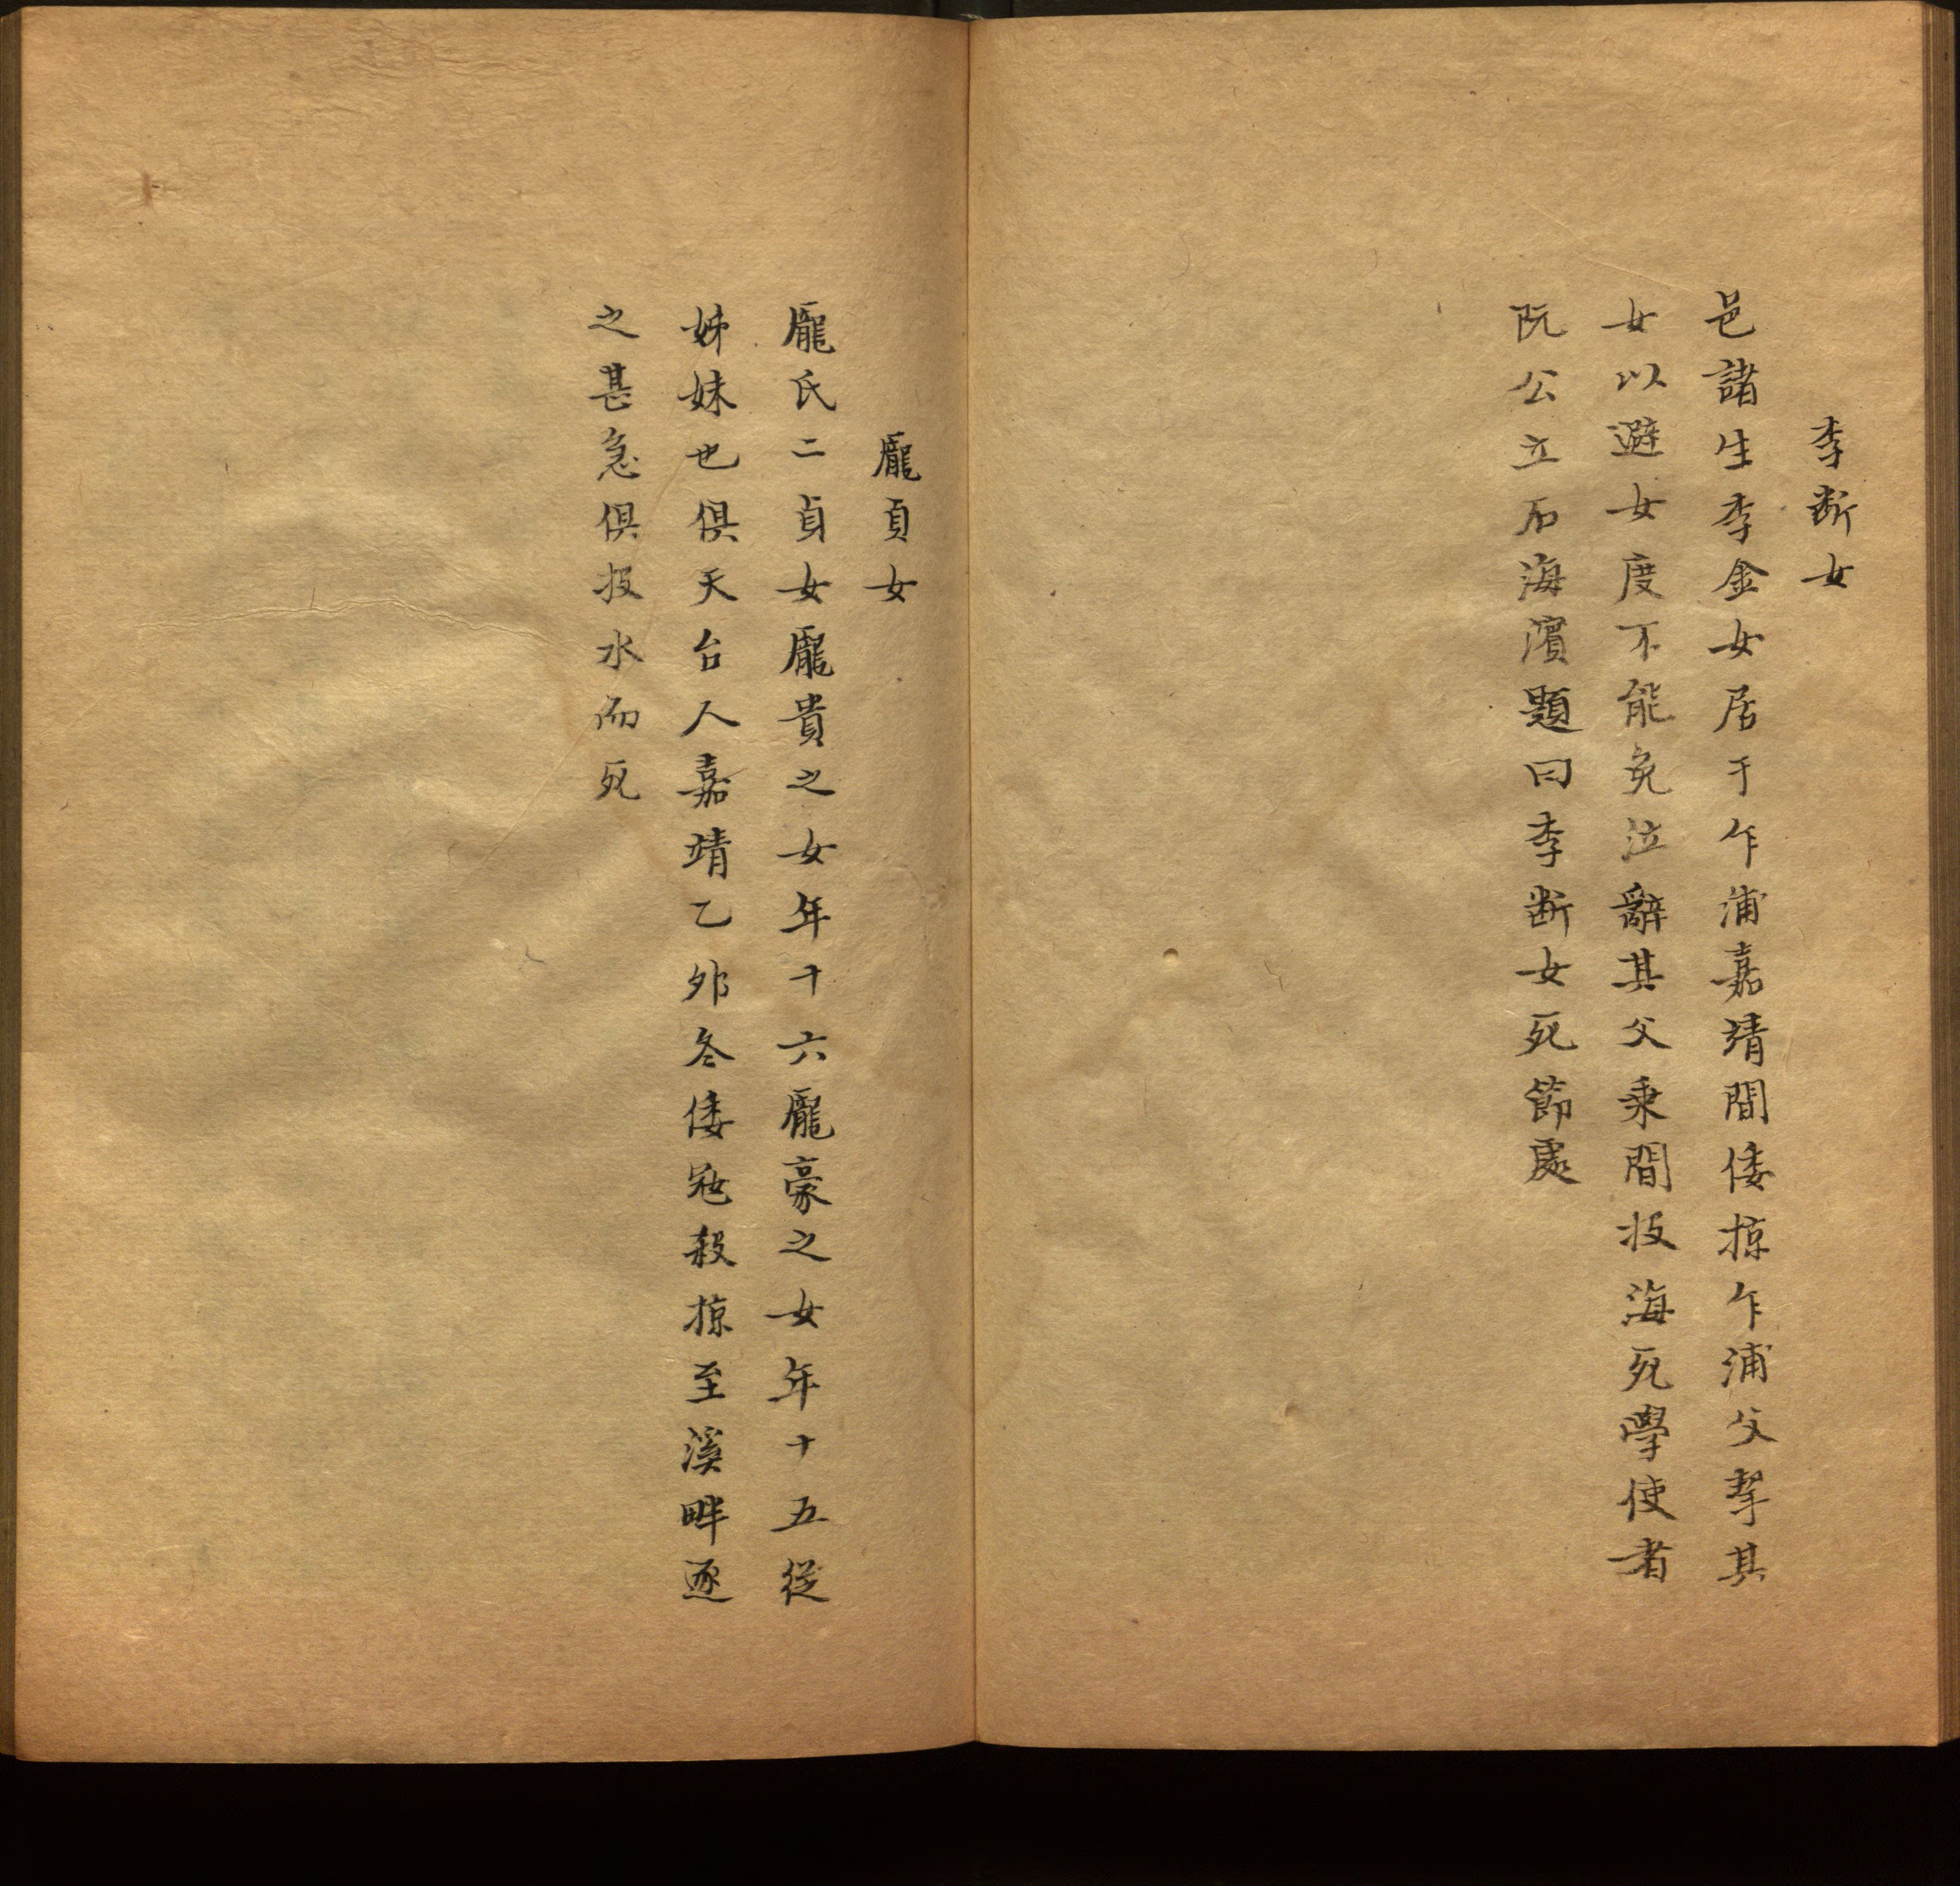 李断女
邑諸生李金女居于乍浦嘉靖間倭掠乍浦父挈其
女以避女度不能免泣辭其父乘間投海死學使者
阮公立石海濱題曰李断女死節處
龐貞女
龐氏二貞女龐貴之女年十六龐豪之女年十五從
姊妹也俱天台人嘉靖乙夘冬倭寇殺掠至溪畔逐
之甚急俱投水而死